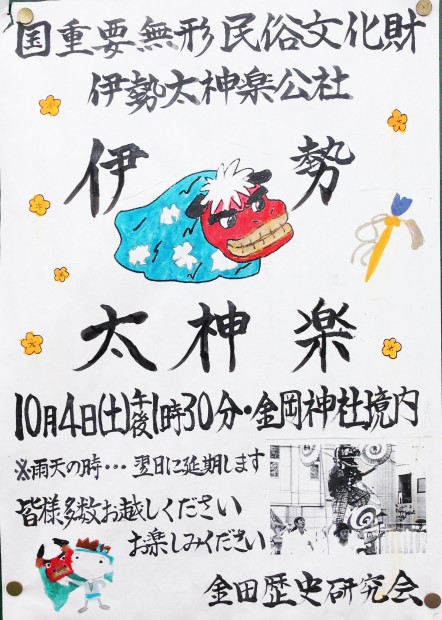 国重要無形民俗文化財
伊勢太神楽公社
伊勢
太神楽
10月4日(土)午後1時30分・金岡神社境内
※雨天の時…翌日に延期します
皆様多数お越しください
お楽しみください
金田歴史研究会